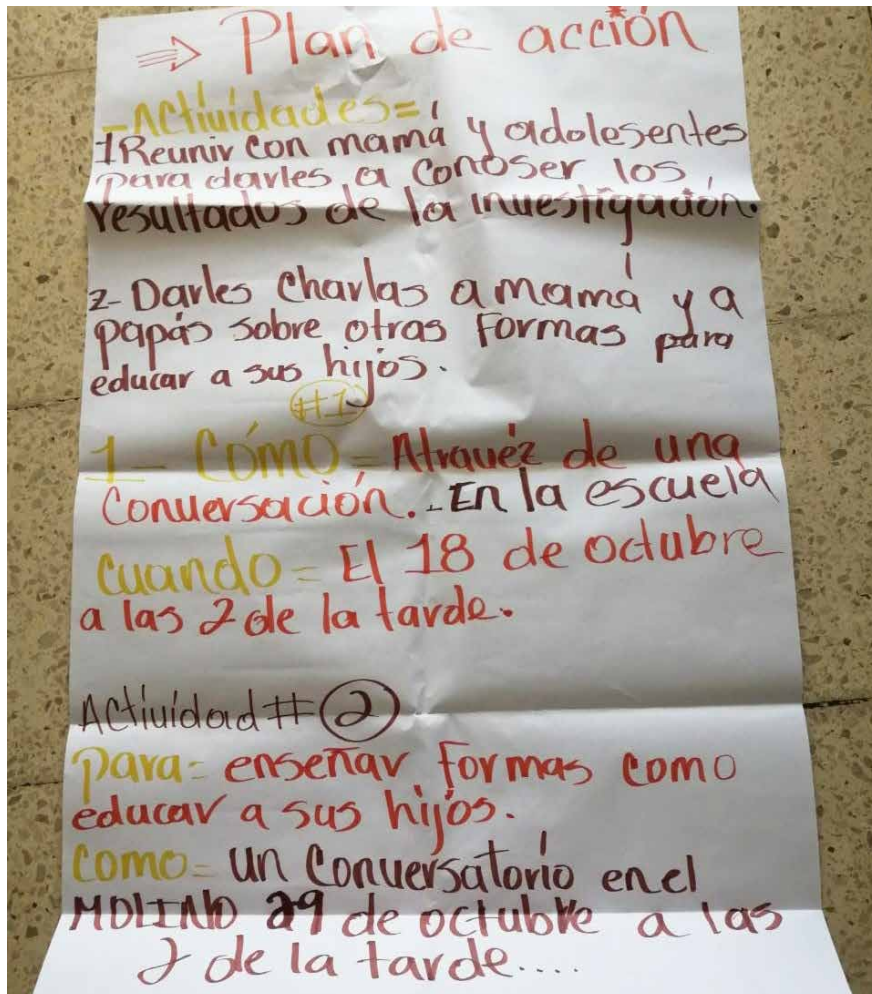 ⇒ Plan de acción
-Actividades=
1 Reunir con mamá y adolesentes
para darles a conoser los
resultados de la investigación.
2- Darles charlas a mamá y a
papás sobre otras formas para
educar a sus hijos.
#1
1- Cómo= Atravéz de una
Conversación. - En la escuela
cuando= El 18 de octubre
a las 2 de la tarde.
Actividad # 2
para= enseñar formas como
educar a sus hijos.
como= un conversatorio en el
MOLINO 29 de octubre a las
2 de la tarde....